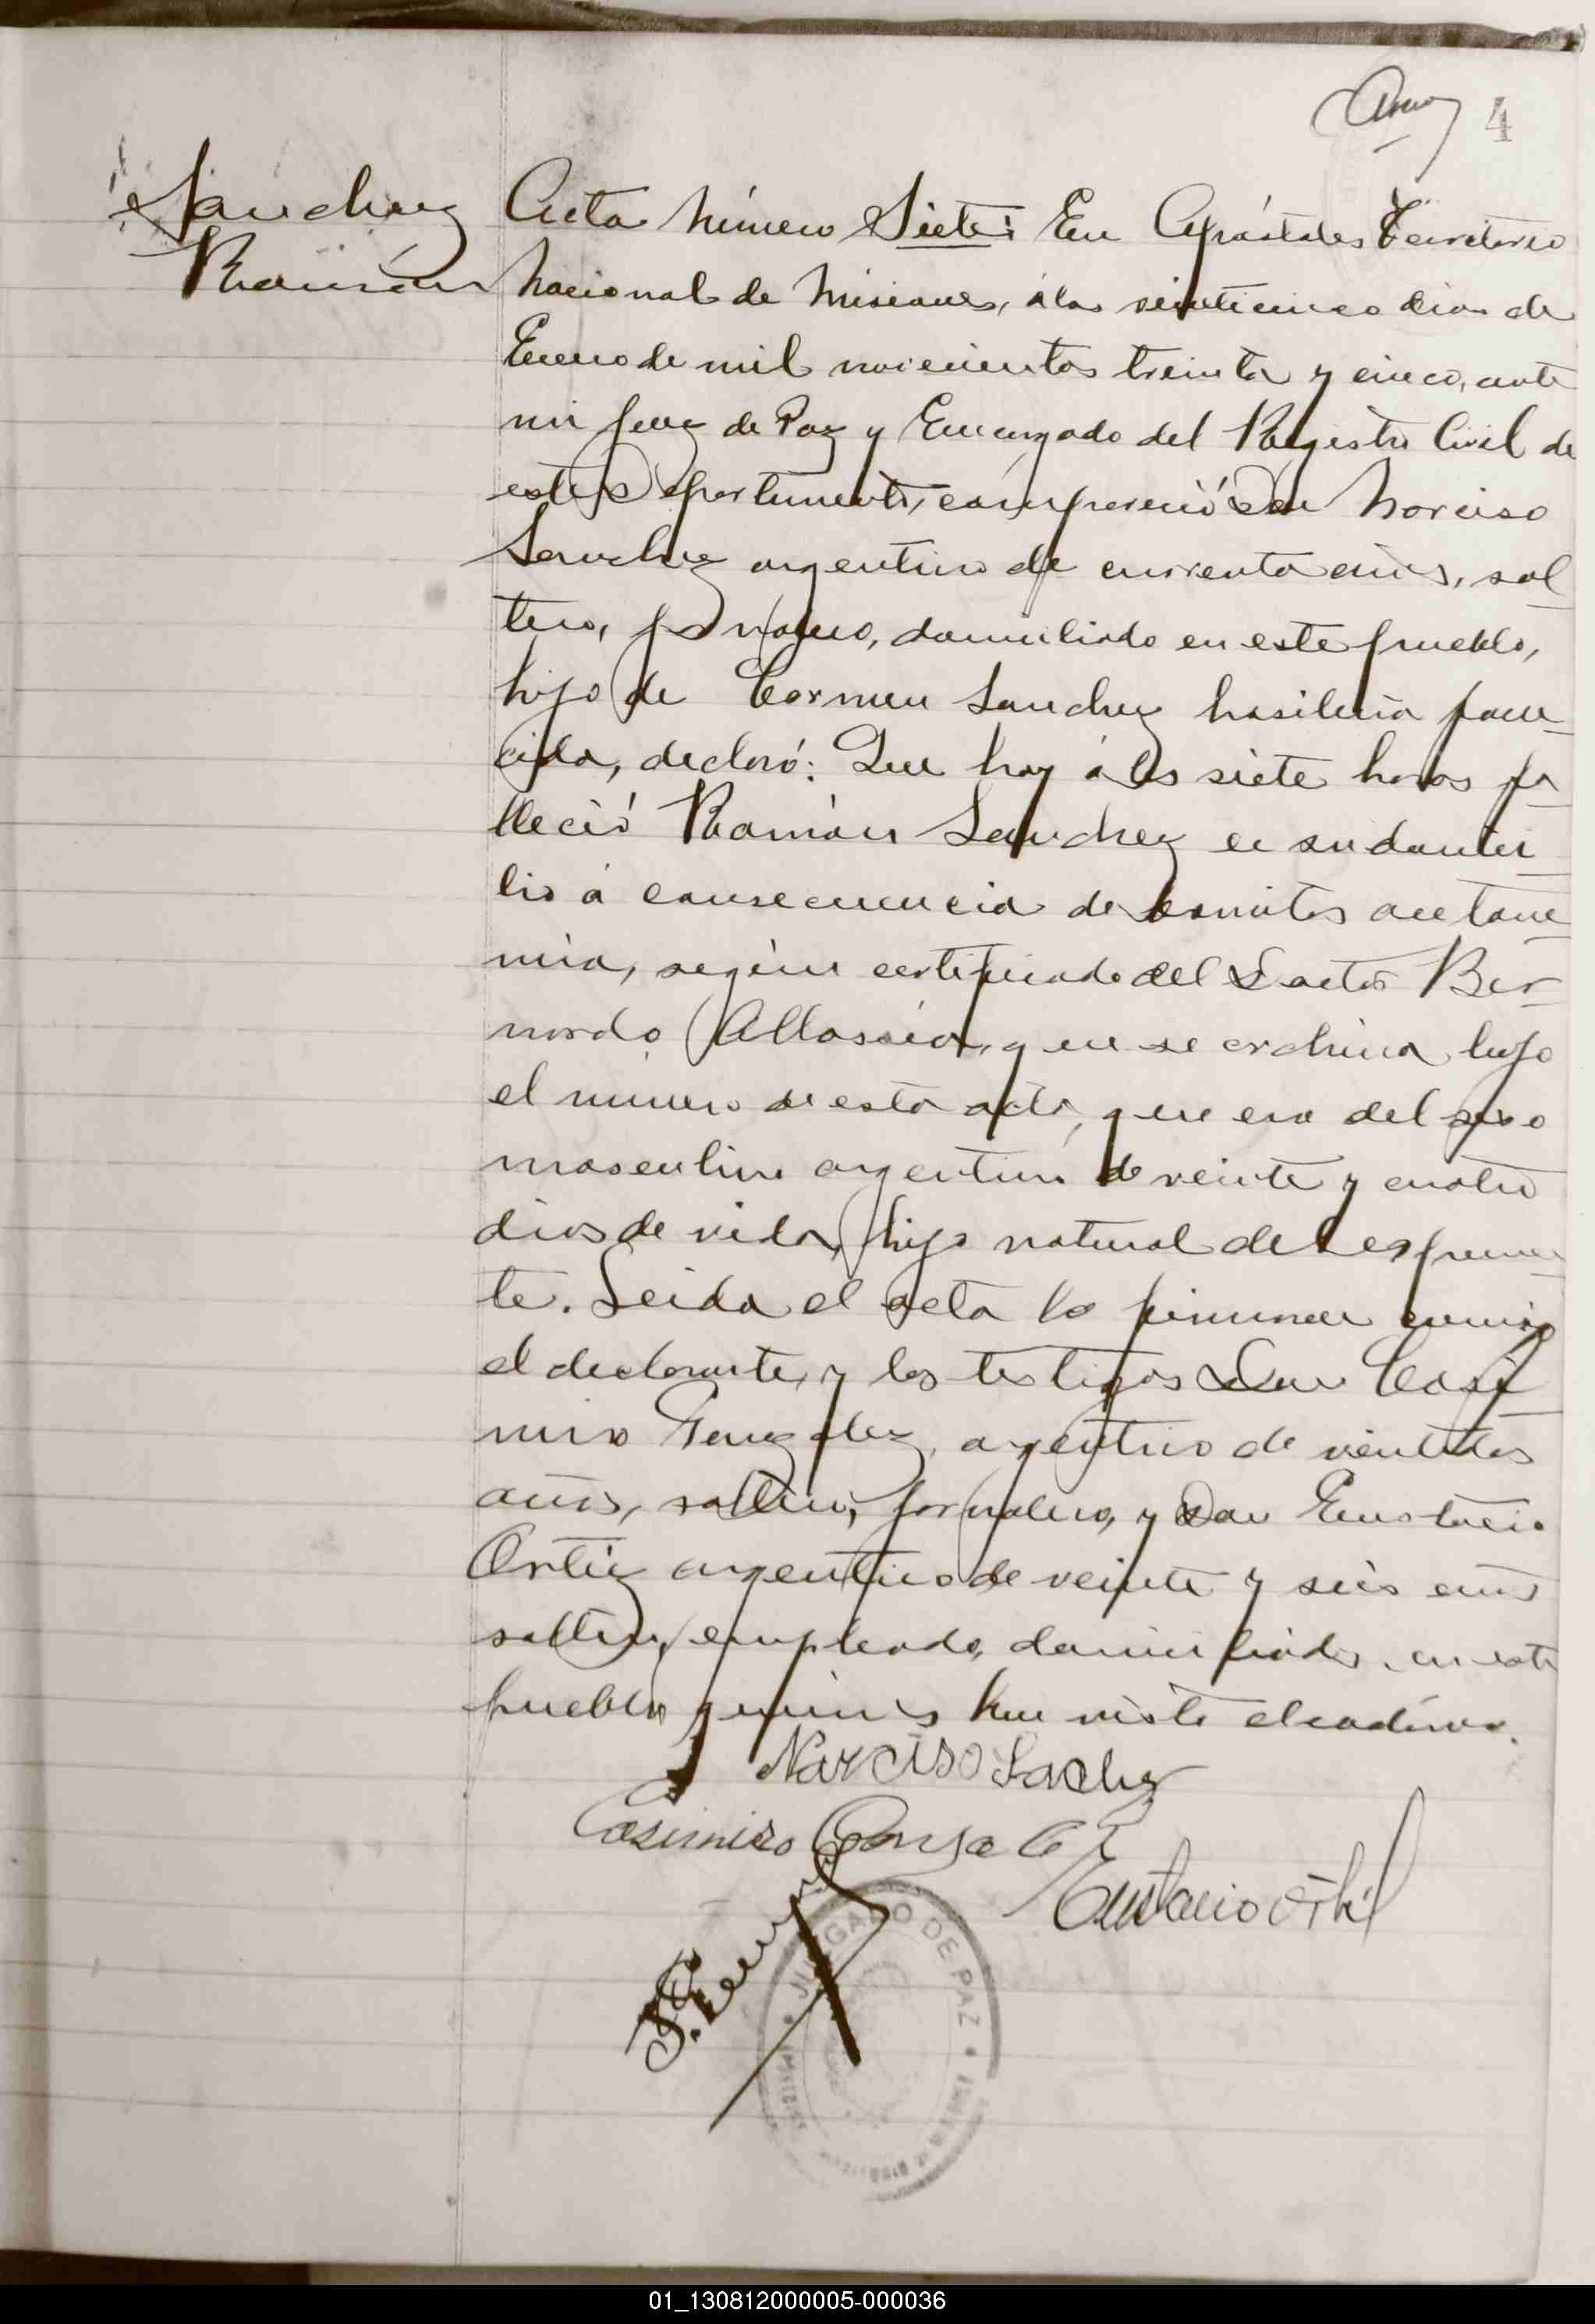 4
Sanchez
Ramón
Acta Número Siete: En Apóstoles Territorio
Nacional de Misiones, á los veinticinco dias de
Enero de mil novecientos treinta y cinco, ante
mi Juez de Paz y Encargado del Registro Civil de
este Departamento, compareció Don Narciso
Sanchez argentino de cuarenta años, sol
tero, jornalero, domiciliado en este pueblo,
hijo de Carmen Sanchez brasileña falle
cida, declaró: Que hoy á las siete horas fa
lleció Ramón Sanchez en su domici
lio á consecuencia de vomitos acetone
mia, según certificado del Doctor Ber
nardo Allassia, que se archiva bajo
el numero de esta acta, que era del sexo
masculino argentino de veinte y cuatro
dias de vida, hijo natural del exponen
te. Leida el acta la firman conmigo
el declarante, y los testigos Don Casi
miro Gonzalez, argentino de veintidos
años, soltero, jornalero, y Don Eustacio
Ortiz argentino de veinte y seis años
soltero, empleado, domiciliados en este
pueblo quienes han visto el cadáver.
Narciso Sachez
Casimiro Gonsalez
Eustacio Ortiz
JUZGADO DE PAZ
01_130812000005-000036